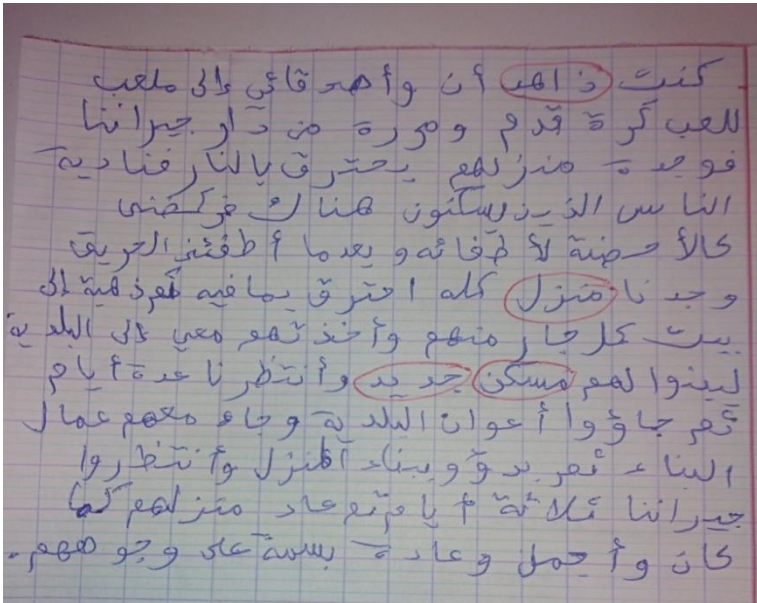 كنت ذاهب أن وأصدقائي إلى ملعب
للعب كرة قدم ومررة من دار جيراننا
فوجدة منزلهم يحترق بالنار فنادية
الناس الذين يسكنون هناك فركضنى
كالأحصنة لأطفائه وبعدما أطفئنا الحريق
وجدنا منزل كله احترق بما فيه ثم ذهبة إلى
بيت كل جار منهم وأخذتهم معي إلى البلدية
ليبنوا لهم مسكن جديد وأنتظرنا عدة أيام
ثم جاؤوا أعوان البلدية وجاء معهم عمال
البناء ثم بدؤو ببناء المنزل وأنتظروا
جيراننا ثلاثة أيام ثم عاد منزلهم كما
كان وأجمل وعادة بسمة على وجوههم.